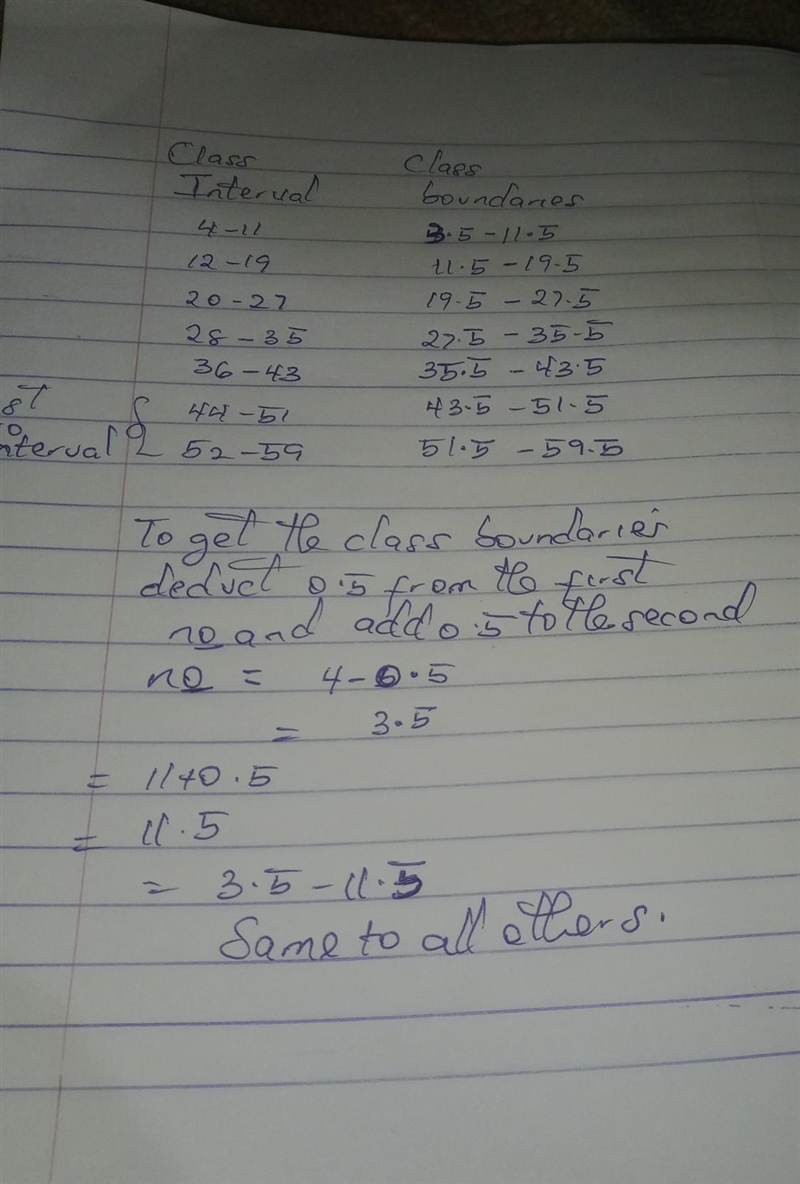 Class Class
Interval boundaries
4-11 3.5-11.5
12-19 11.5-19.5
20-27 19.5-27.5
28-35 27.5-35.5
36-43 35.5-43.5
44-51 43.5-51.5
52-59 51.5-59.5
To get the class boundaries
deduct 0.5 from the first
no and add 0.5 to the second
no = 4-0.5
= 3.5
= 11+0.5
= 11.5
= 3.5-11.5
Same to all others.